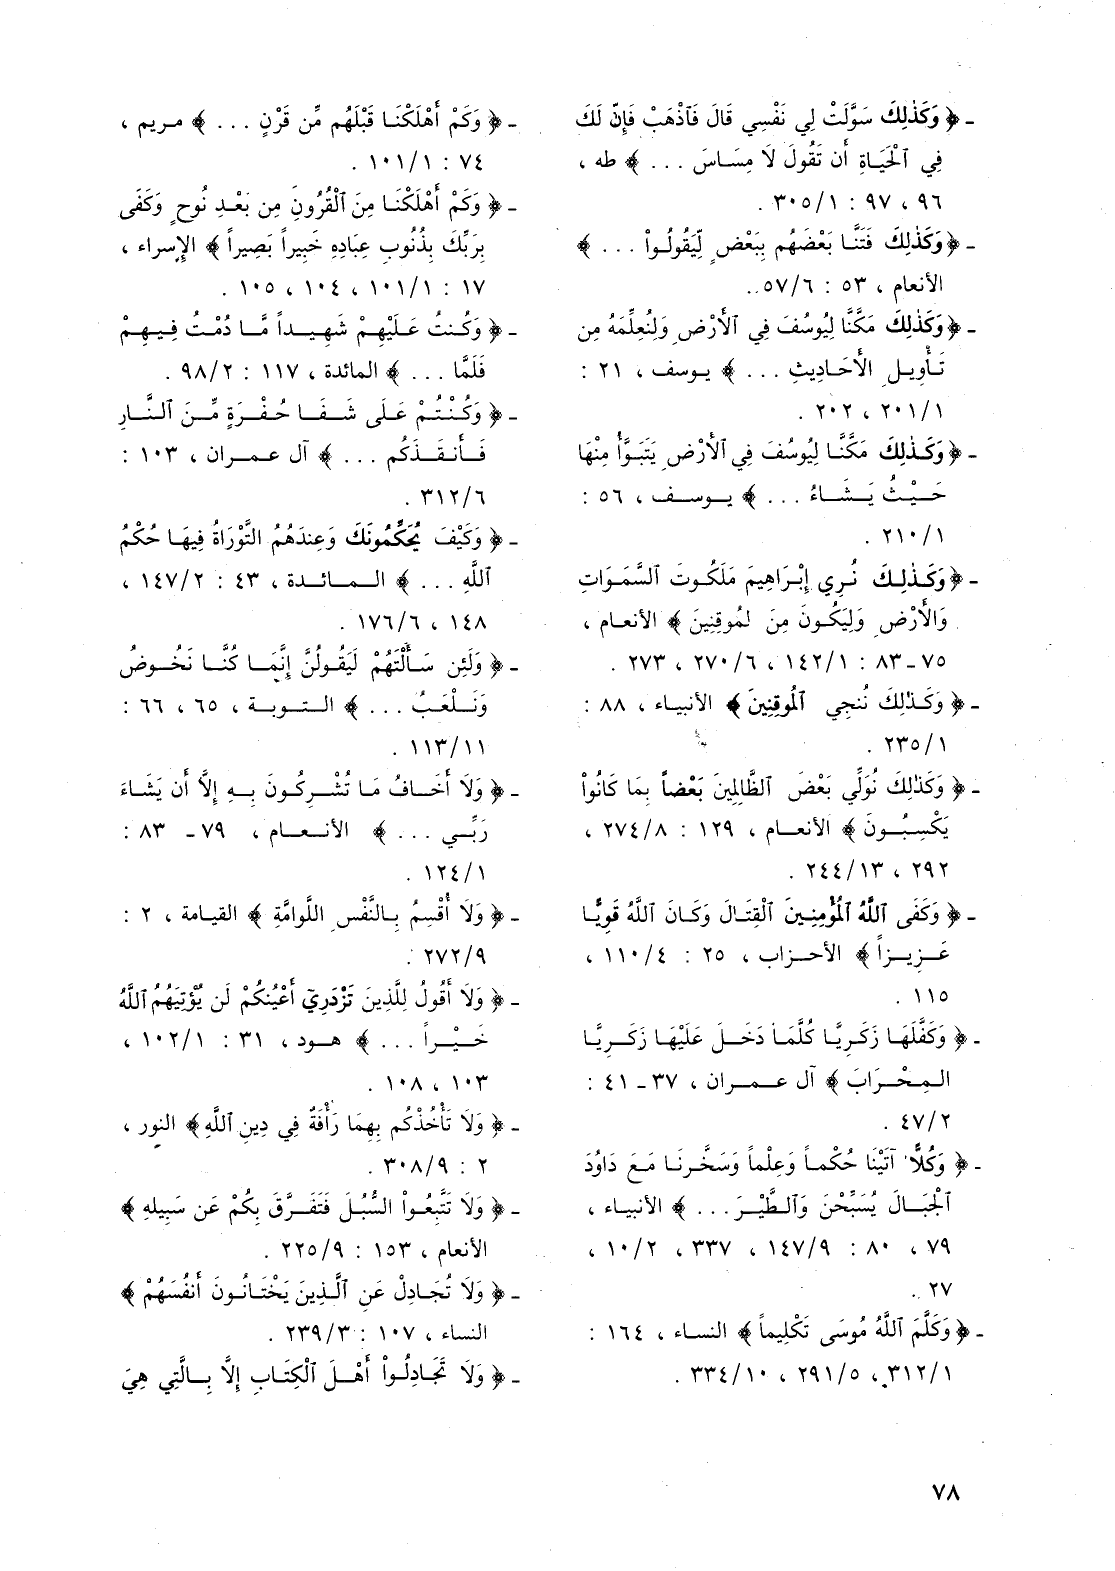 - ﴿ وَكَذٰلِكَ سَوَّلَتْ لِي نَفْسِي قَالَ فَآذْهَبْ فَإِنَّ لَكَ
فِي ٱلْحَيَاةِ أَن تَقُولَ لاَ مِسَاسَ . . . ﴾ طه ،
٩٦ ، ٩٧ : ٣٠٥/١ .
- ﴿ وَكَذٰلِكَ فَتَنَّا بَعْضَهُم بِبَعْضٍ لِّيَقُولُواْ . . . ﴾
الأنعام ، ٥٣ : ٥٧/٦ .
- ﴿ وَكَذٰلِكَ مَكَّنَّا لِيُوسُفَ فِي ٱلأَرْضِ وَلِنُعَلِّمَهُ مِن
تَأْوِيلِ الأَحَادِيثِ . . . ﴾ يوسف ، ٢١ :
٢٠١/١ ، ٢٠٢ .
- ﴿ وَكَذٰلِكَ مَكَّنَّا لِيُوسُفَ فِي ٱلأَرْضِ يَتَبَوَّأُ مِنْهَا
حَيْثُ يَشَاءُ . . . ﴾ يوسف ، ٥٦ :
٢١٠/١ .
- ﴿ وَكَذٰلِكَ نُرِي إِبْرَاهِيمَ مَلَكُوتَ السَّمَوَاتِ
وَالأَرْضِ وَلِيَكُونَ مِنَ لمُوقِنِينَ ﴾ الأنعام ،
٧٥ - ٨٣ : ١٤٢/١ ، ٢٧٠/٦ ، ٢٧٣ .
- ﴿ وَكَذٰلِكَ نُنجِي ٱلْمُوقِنِينَ ﴾ الأنبياء ، ٨٨ :
٢٣٥/١ .
- ﴿ وَكَذٰلِكَ نُوَلِّي بَعْضَ ٱلظَّالِمِينَ بَعْضاً بِمَا كَانُواْ
يَكْسِبُونَ ﴾ الأنعام ، ١٢٩ : ٢٧٤/٨ ،
٢٩٢ ، ٢٤٤/١٣ .
- ﴿ وَكَفَى ٱللَّهُ ٱلْمُؤْمِنِينَ ٱلْقِتَالَ وَكَانَ ٱللَّهُ قَوِيًّا
عَزِيزاً ﴾ الأحزاب ، ٢٥ : ١١٠/٤ ،
١١٥ .
- ﴿ وَكَفَّلَهَا زَكَرِيَّا كُلَّمَا دَخَلَ عَلَيْهَا زَكَرِيَّا
المِحْرَابَ ﴾ آل عمران ، ٣٧ - ٤١ :
٤٧/٢ .
- ﴿ وَكُلاًّ آتَيْنَا حُكْماً وَعِلْماً وَسَخَّرنَا مَعَ دَاوُدَ
ٱلْجِبَالَ يُسَبِّحْنَ وَٱلطَّيْرَ . . . ﴾ الأنبياء ،
٧٩ ، ٨٠ : ١٤٧/٩ ، ٣٣٧ ، ١٠/٢ ،
٢٧ .
- ﴿ وَكَلَّمَ ٱللَّهُ مُوسَى تَكْلِيماً ﴾ النساء ، ١٦٤ :
٣١٢/١ ، ٢٩١/٥ ، ٣٣٤/١٠ .
- ﴿ وَكَمْ أَهْلَكْنَا قَبْلَهُم مِّن قَرْنٍ . . . ﴾ مريم ،
٧٤ : ١٠١/١ .
- ﴿ وَكَمْ أَهْلَكْنَا مِنَ ٱلْقُرُونِ مِن بَعْدِ نُوحٍ وَكَفَى
بِرَبِّكَ بِذُنُوبِ عِبَادِهِ خَبِيراً بَصِيراً ﴾ الإسراء ،
١٧ : ١٠١/١ ، ١٠٤ ، ١٠٥ .
- ﴿ وَكُنتُ عَلَيْهِمْ شَهِيداً مَّا دُمْتُ فِيهِمْ
فَلَمَّا . . . ﴾ المائدة ، ١١٧ : ٩٨/٢ .
- ﴿ وَكُنْتُمْ عَلَى شَفَا حُفْرَةٍ مِّنَ ٱلنَّارِ
فَأَنقَذَكُم . . . ﴾ آل عمران ، ١٠٣ :
٣١٢/٦ .
- ﴿ وَكَيْفَ يُحَكِّمُونَكَ وَعِندَهُمُ التَّوْرَاةُ فِيهَا حُكْمُ
ٱللَّهِ . . . ﴾ المائدة ، ٤٣ : ١٤٧/٢ ،
١٤٨ ، ١٧٦/٦ .
- ﴿ وَلَئِن سَأَلْتَهُمْ لَيَقُولُنَّ إِنَّمَا كُنَّا نَخُوضُ
وَنَلْعَبُ . . . ﴾ التوبة ، ٦٥ ، ٦٦ :
١١٣/١١ .
- ﴿ وَلاَ أَخَافُ مَا تُشْرِكُونَ بِهِ إِلاَّ أَن يَشَاءَ
رَبِّي . . . ﴾ الأنعام ، ٧٩ - ٨٣ :
١٢٤/١ .
- ﴿ وَلاَ أُقْسِمُ بِالنَّفْسِ اللَّوامَّةِ ﴾ القيامة ، ٢ :
٢٧٢/٩ .
- ﴿ وَلاَ أَقُولُ لِلَّذِينَ تَزْدَرِي أَعْيُنُكُمْ لَن يُؤْتِيَهُمُ ٱللَّهُ
خَيْراً . . . ﴾ هود ، ٣١ : ١٠٢/١ ،
١٠٣ ، ١٠٨ .
- ﴿ وَلاَ تَأْخُذْكُم بِهِمَا رَأْفَةٌ فِي دِينِ ٱللَّهِ ﴾ النور ،
٢ : ٣٠٨/٩ .
- ﴿ وَلاَ تَتَّبِعُواْ السُّبُلَ فَتَفَرَّقَ بِكُمْ عَن سَبِيلِهِ ﴾
الأنعام ، ١٥٣ : ٢٢٥/٩ .
- ﴿ وَلاَ تُجَادِلْ عَنِ ٱلَّذِينَ يَخْتَانُونَ أَنفُسَهُمْ ﴾
النساء ، ١٠٧ : ٢٣٩/٣ .
- ﴿ وَلاَ تَجَادِلُواْ أَهْلَ ٱلْكِتَابِ إِلاَّ بِالَّتِي هِيَ
٧٨